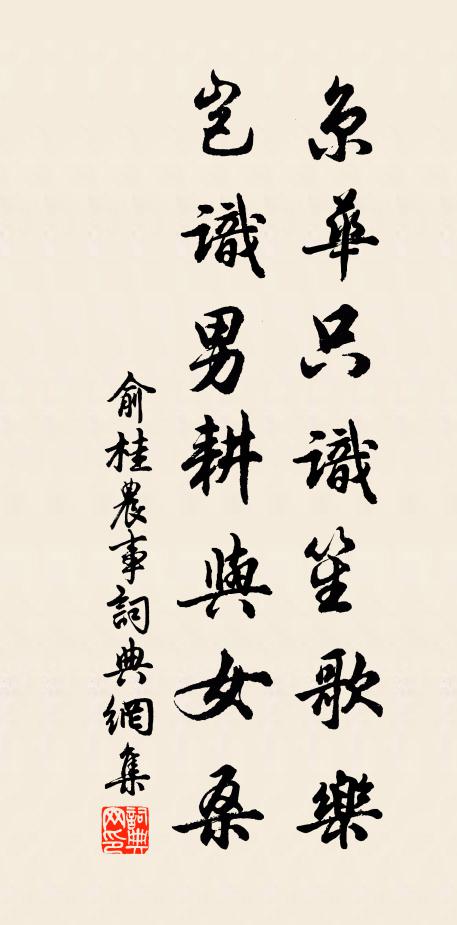 京華只識笙歌樂
豈識男耕與女桑
俞桂農事詞典網集
詞典網印